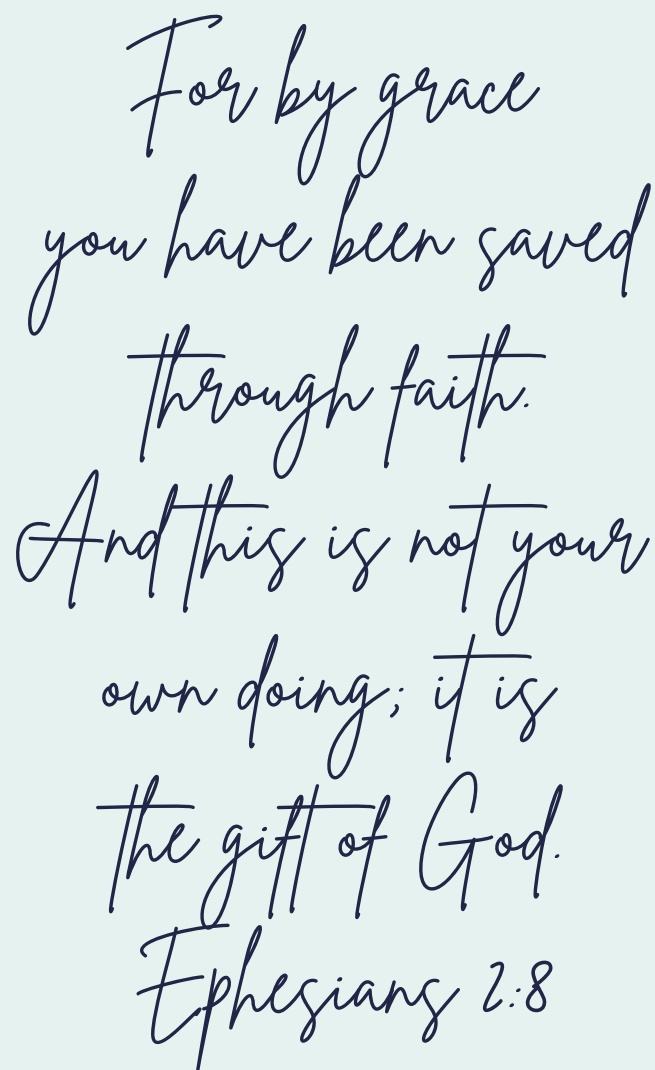 For by grace
you have been saved
through faith.
And this is not your
own doing; it is
the gift of God.
Ephesians 2:8